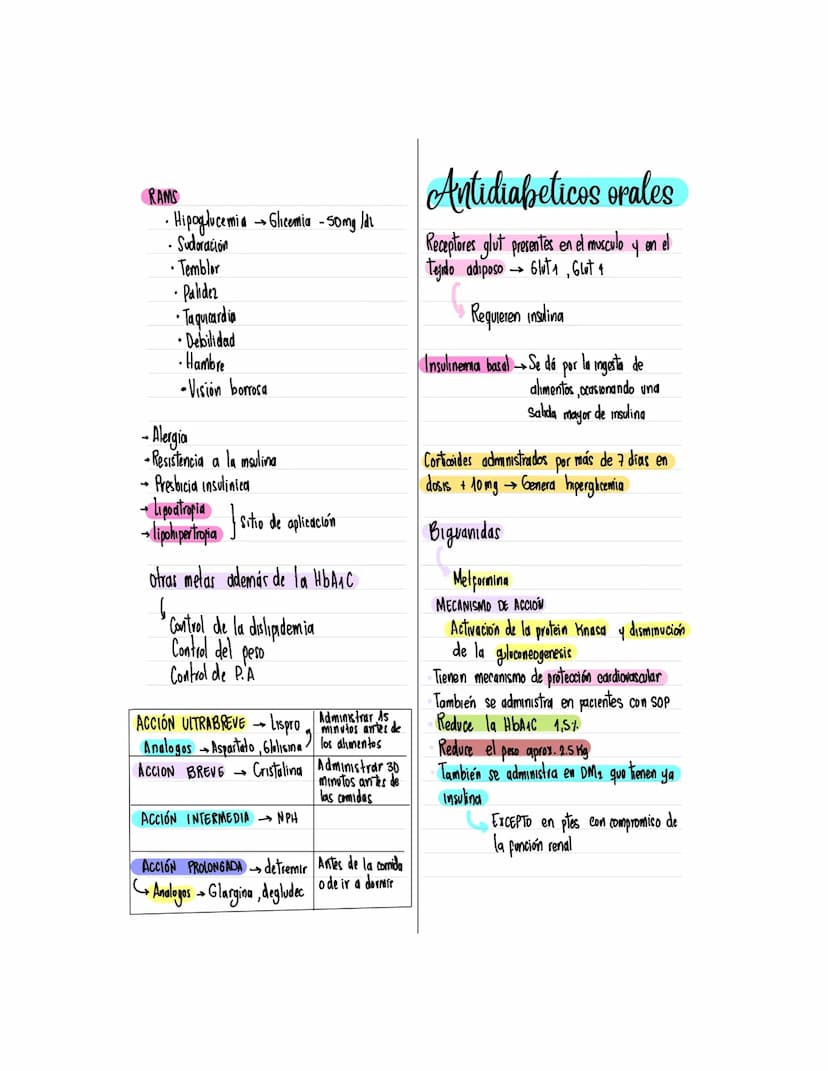 RAMS
· Hipoglucemia → Glicemia - 50mg/dl
· Sudoración
· Temblor
· Palidez
· Taquicardia
· Debilidad
· Hambre
· Visión borrosa
→ Alergia
→ Resistencia a la insulina
→ Presbicia insulinica
→ Lipodtropia
→ lipohipertropia
Sitio de aplicación
Otras metas además de la HbA1C
Control de la dislipidemia
Control del peso
Control de P.A
ACCIÓN ULTRABREVE → Lispro
Analogos → Aspartato, Glulisina
Administrar 15
minutos antes de
los alimentos
ACCION BREVE → Cristalina
Administrar 30
minutos antes de
las comidas
ACCIÓN INTERMEDIA → NPH
ACCIÓN PROLONGADA → detremir
↪ Analogos → Glargina, degludec
Antes de la comida
o de ir a dormir
Antidiabeticos orales
Receptores glut presentes en el musculo y en el
tejido adiposo → Glut 1, Glut 4
Requieren insulina
Insulinemia basal → Se dá por la ingesta de
alimentos, ocasionando una
salida mayor de insulina
Corticoides administrados por más de 7 dias en
dosis + 10mg → Genera hiperglicemia
Biguanidas
Metformina
MECANISMO DE ACCIÓN
Activación de la protein Kinasa y disminución
de la gluconeogenesis
· Tienen mecanismo de protección cardiovascular
· También se administra en pacientes con SOP
· Reduce la HbA1C 1,5%
· Reduce el peso aprox. 2.5 Kg
· También se administra en DM2 que tienen ya
insulina
↪ EXCEPTO en ptes con compromico de
la función renal